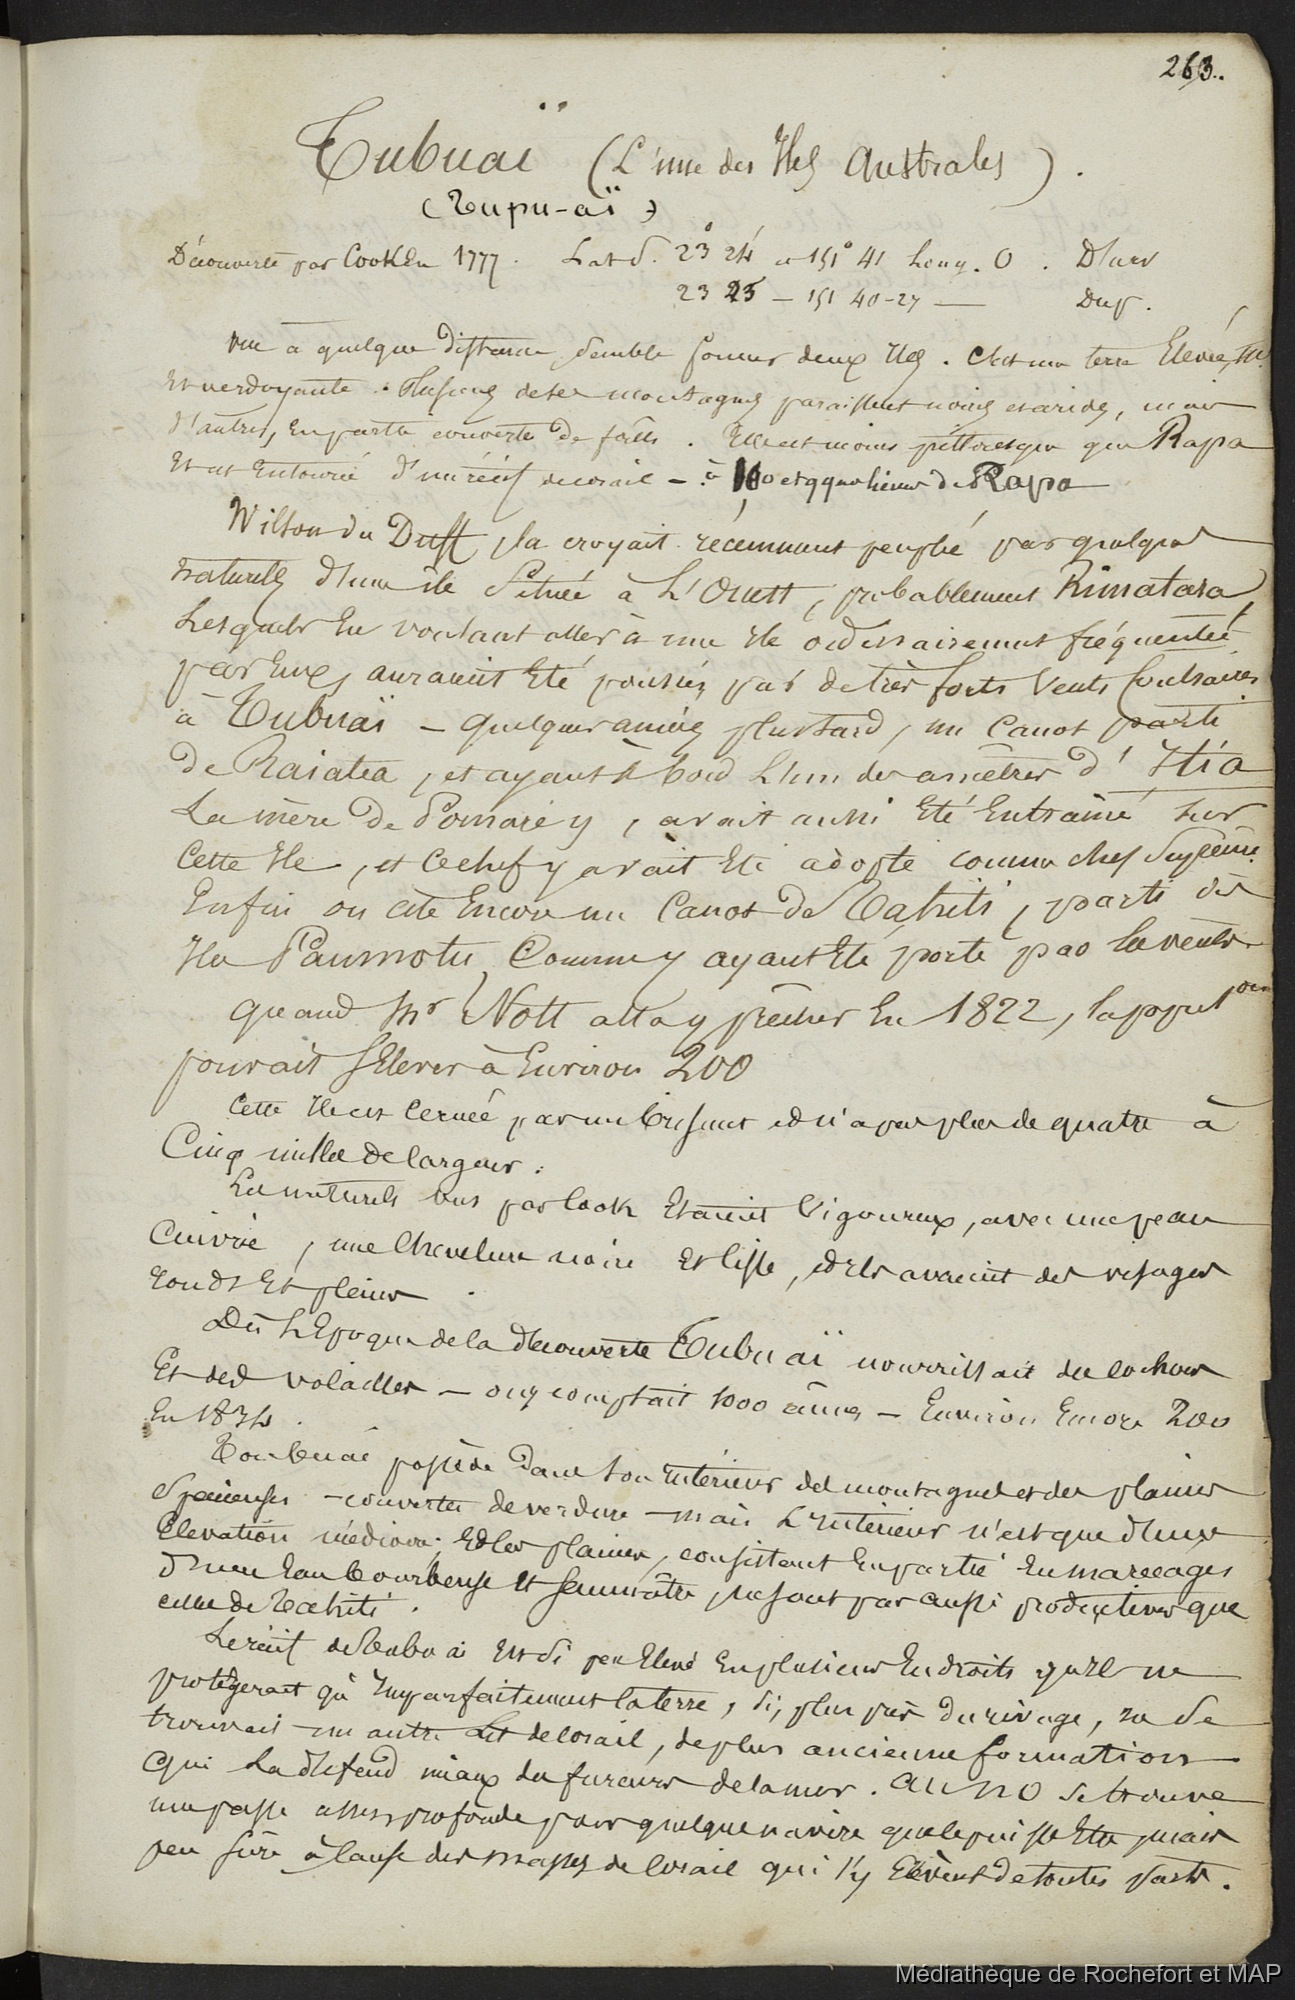 263.
Tubuaï (L'une des Iles Australes).
(Tupu-aï)
Découverte par Cook En 1777. Lat S. 23° 24' et 151° 41 Long. O. D'Urv
23 25 — 151 40-27 — Dup.
vue à quelque distance semble former deux Iles. C'est une terre Elevée,
Et verdoyante. Plusieurs de ses montagnes paraissent noires et arides, mais
d'autres, en partie couvertes de forêts. Elle est moins pittoresque que Rapa
Et est Entourée d'un récif de corail — à 110 et qques lieues de Rapa
Wilson du Duff, la croyait récemment peuplée par quelques
naturels d'une île Située à L'Ouest, probablement Rimatara,
Lesquels En voulant aller à une Ile ordinairement fréquentée
par Eux, auraient Eté poussés par de très forts Vents Contraires
à Tubuaï — quelques années plus tard, un Canot parti
de Raiatea, et ayant à bord L'un des ancêtres d'Itia
La mère de Pomaré, avait aussi Eté Entrainé sur
Cette Ile, et ce chef y avait Eté adopté comme chef Suprême.
Enfin on cite Encore un Canot de Tahiti, parti des
Iles Paumotu, Comme y ayant Eté porté par les vents.
quand Mr Nott alla y prêcher En 1822, la popul.on
pouvait S'Elever à Environ 200
Cette Ile est Cernée par un brisant et n'a pas plus de quatre à
Cinq milles de largeur.
Les naturels vus par Cook Etaient Vigoureux, avec une peau
Cuivrée, une Chevelure noire Et lisse, et Ils avaient des visages
ronds Et pleins.
Dès L'Epoque de la découverte Tubuaï nourrissait des cochons
Et des volailles — on y comptait 1000 âmes — Environ Encore 200
En 1834.
Toubouai possède dans son Intérieur des montagnes et des plaines
Spacieuses — couvertes de verdure — mais L'Intérieur n'est que d'une
Elevation médiocre; Et les plaines, consistant En partie En marécages
d'une Eau bourbeuse Et saumâtre, ne sont pas aussi productives que
celles de Tahiti.
Le récif de Tubuaï Est si peu Elevé En plusieurs Endroits qu'Il ne
protégerait qu'Imparfaitement la terre, si, plus près du rivage, ne se
trouvait un autre Lit de corail, de plus ancienne formation
Qui La défend mieux des fureurs de la mer. au NO se trouve
une passe assez profonde pour quelque navire que le puisse Etre, mais
peu sûre à cause des masses de corail qui s'y Elèvent de toutes parts.
Médiathèque de Rochefort et MAP